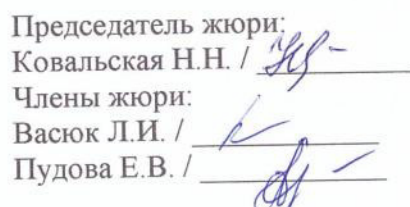 Председатель жюри:
Ковальская Н.Н. /
Члены жюри:
Васюк Л.И. /
Пудова Е.В. /